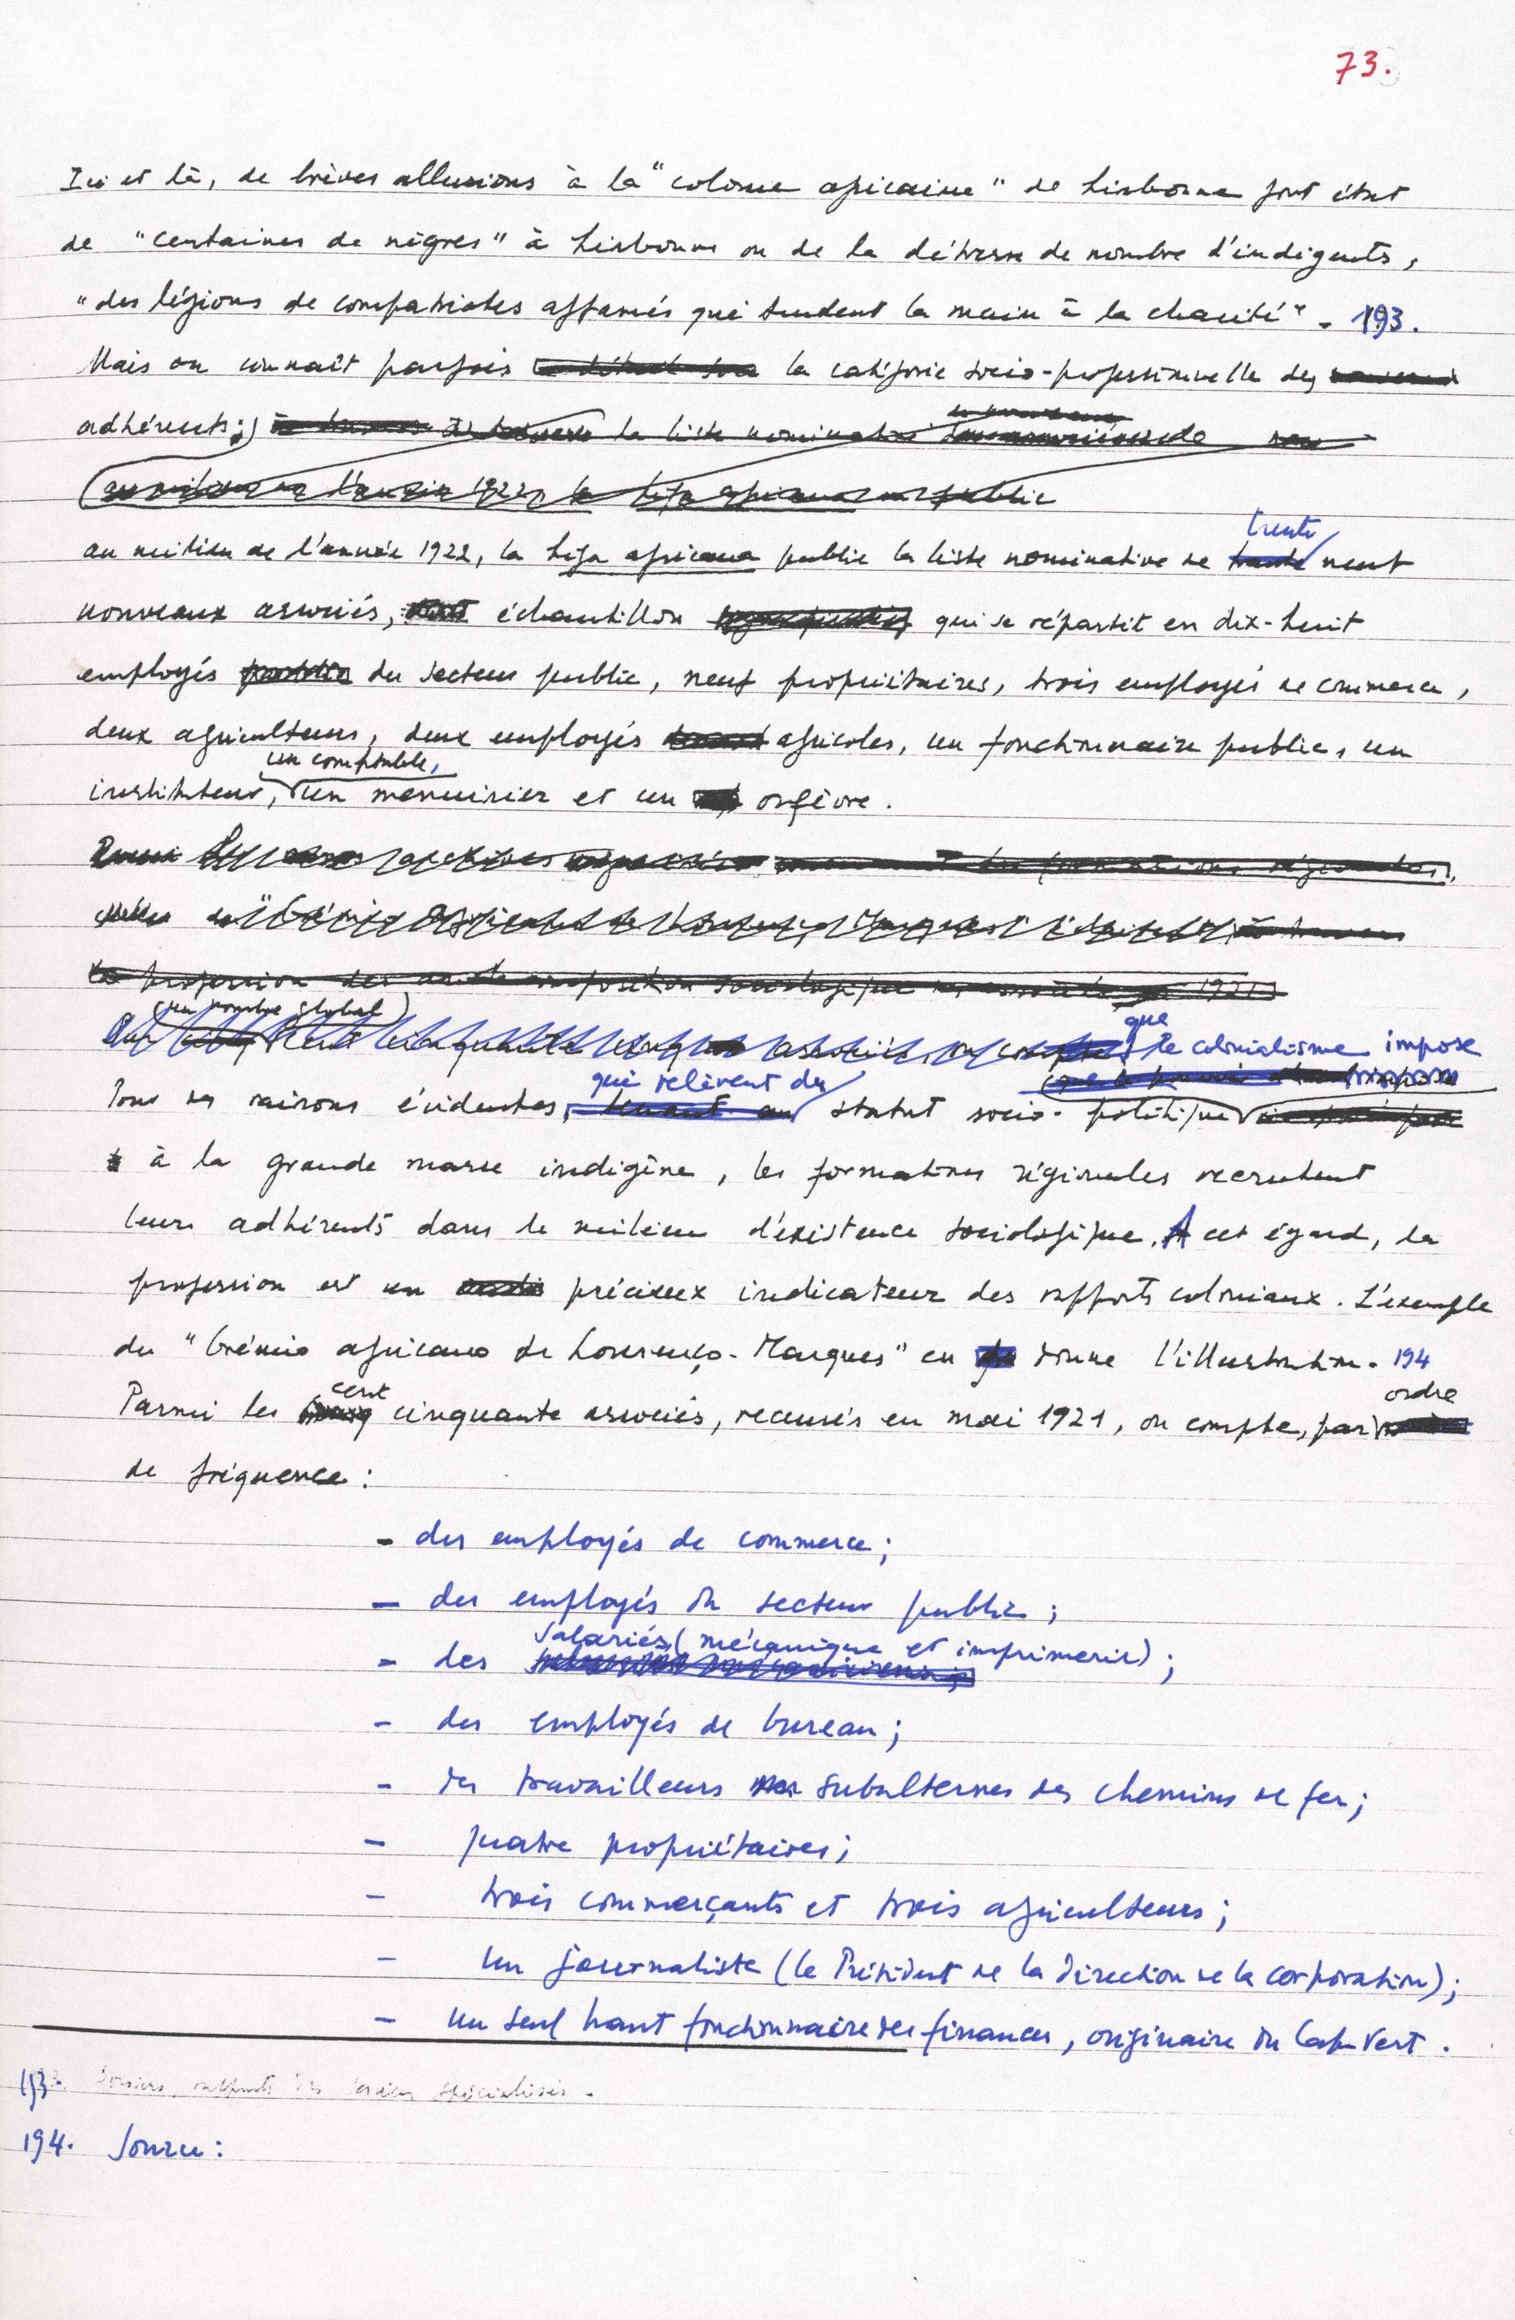 73.
Ici et là, de brèves allusions à la "colonie africaine" de Lisbonne font état
de "centaines de nègres" à Lisbonne ou de la détresse de nombre d'indigents,
"des légions de compatriotes affamés qui tendent la main à la charité". 193.
Mais on connaît parfois la catégorie socio-professionnelle des
adhérents; la liste nominative
l'année 1922, la Liga africana publie
trente
au milieu de l'année 1922, la Liga africana publie la liste nominative de neuf
nouveaux associés, échantillon qui se répartit en dix-huit
employés du secteur public, neuf propriétaires, trois employés de commerce,
deux agriculteurs, deux employés agricoles, un fonctionnaire public, un
un comptable,
instituteur, un menuisier et un orfèvre.
archives des formations régionales,
du "Grémio Africano de Lourenço Marques"
la profession des composition sociologique des associés 1921
(au nombre global)
que
cent cinquante cinq associés, on compte le colonialisme impose
qui relèvent du
Pour des raisons évidentes, statut socio-politique
à la grande masse indigène, les formations régionales recrutent
leurs adhérents dans le milieu d'existence sociologique. A cet égard, la
profession est un précieux indicateur des rapports coloniaux. L'exemple
du "Grémio africano de Lourenço-Marques" en donne l'illustration. 194
cent
ordre
Parmi les cinquante associés, recensés en mai 1921, on compte, par
de fréquence :
- des employés de commerce ;
- des employés du secteur public ;
salariés (mécanique et imprimerie) ;
- des
- des employés de bureau ;
- des travailleurs subalternes des chemins de fer ;
- quatre propriétaires ;
- trois commerçants et trois agriculteurs ;
- un journaliste (le Président de la direction de la corporation) ;
- un seul haut fonctionnaire des finances, originaire du Cap Vert .
193. Dossiers, rapports des services spécialisés .
194. Source :